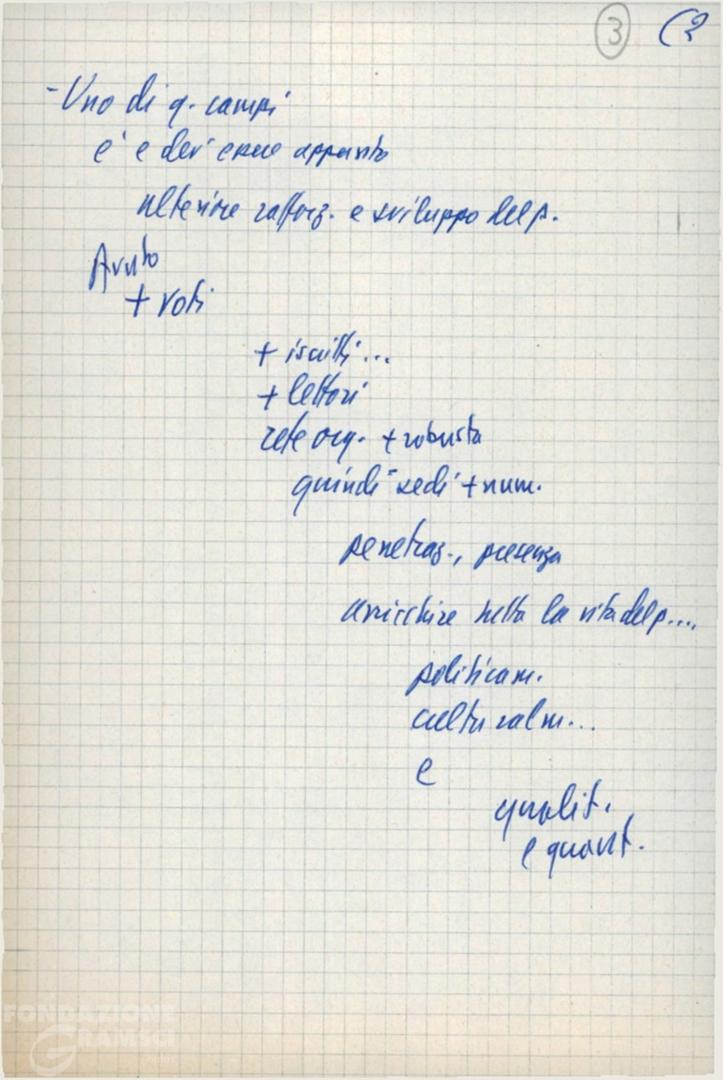 3 (2
- Uno di q. campi
è e dev'essere appunto
ulteriore rafforz. e sviluppo del p.
Avuto
+ voti
+ iscritti...
+ lettori
rete org. + robusta
quindi sedi + num.
penetraz., presenza
arricchire tutta la vita del p....
politicam.
culturalm...
e
qualit.
e quant.
FONDAZIONE
GRAMSCI